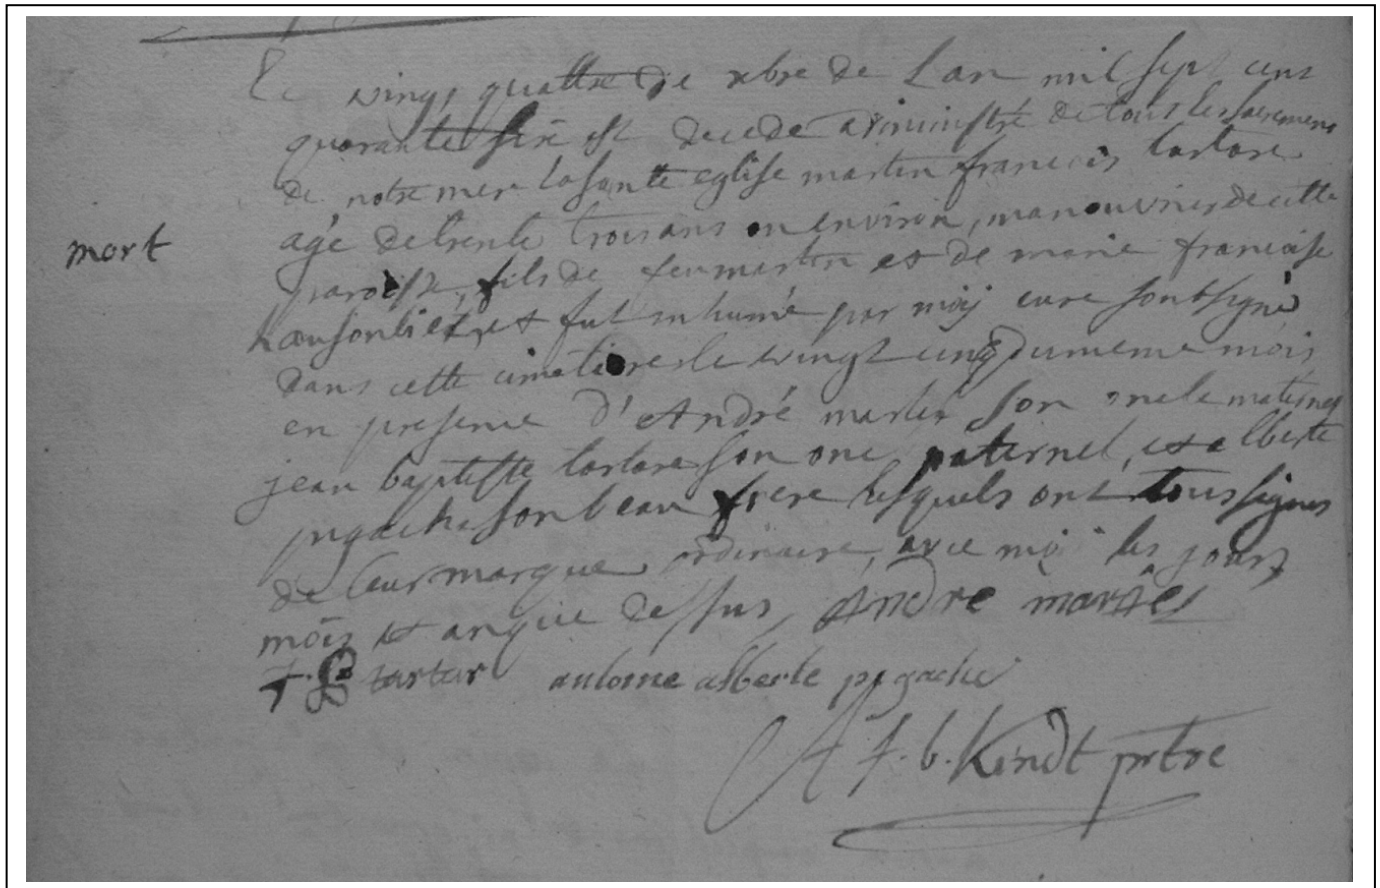 Le vingt quattre de xbre de Lan mil sept cens
quarante est decede administré de tous les sacremens
de notre mere la sante eglise martin francois tartare
agé de trente trois ans ou environ, manouvrier de cette
mort
paroisse, fils de feu martin et de marie francoise
et fut inhumé par moij curé soutsigné
dans cette cimetiere le vingt cinq du meme mois
en presence d'André martel son oncle maternel
jean baptiste tartare son onc paternel, et alberte
pigache son beau frere lesquels ont tous signes
de leur marque ordinaire, avec moi les jours,
mois et an que dessus, André martel
J. B tartar antoine alberte pigache
A f. b. Kindt prtre